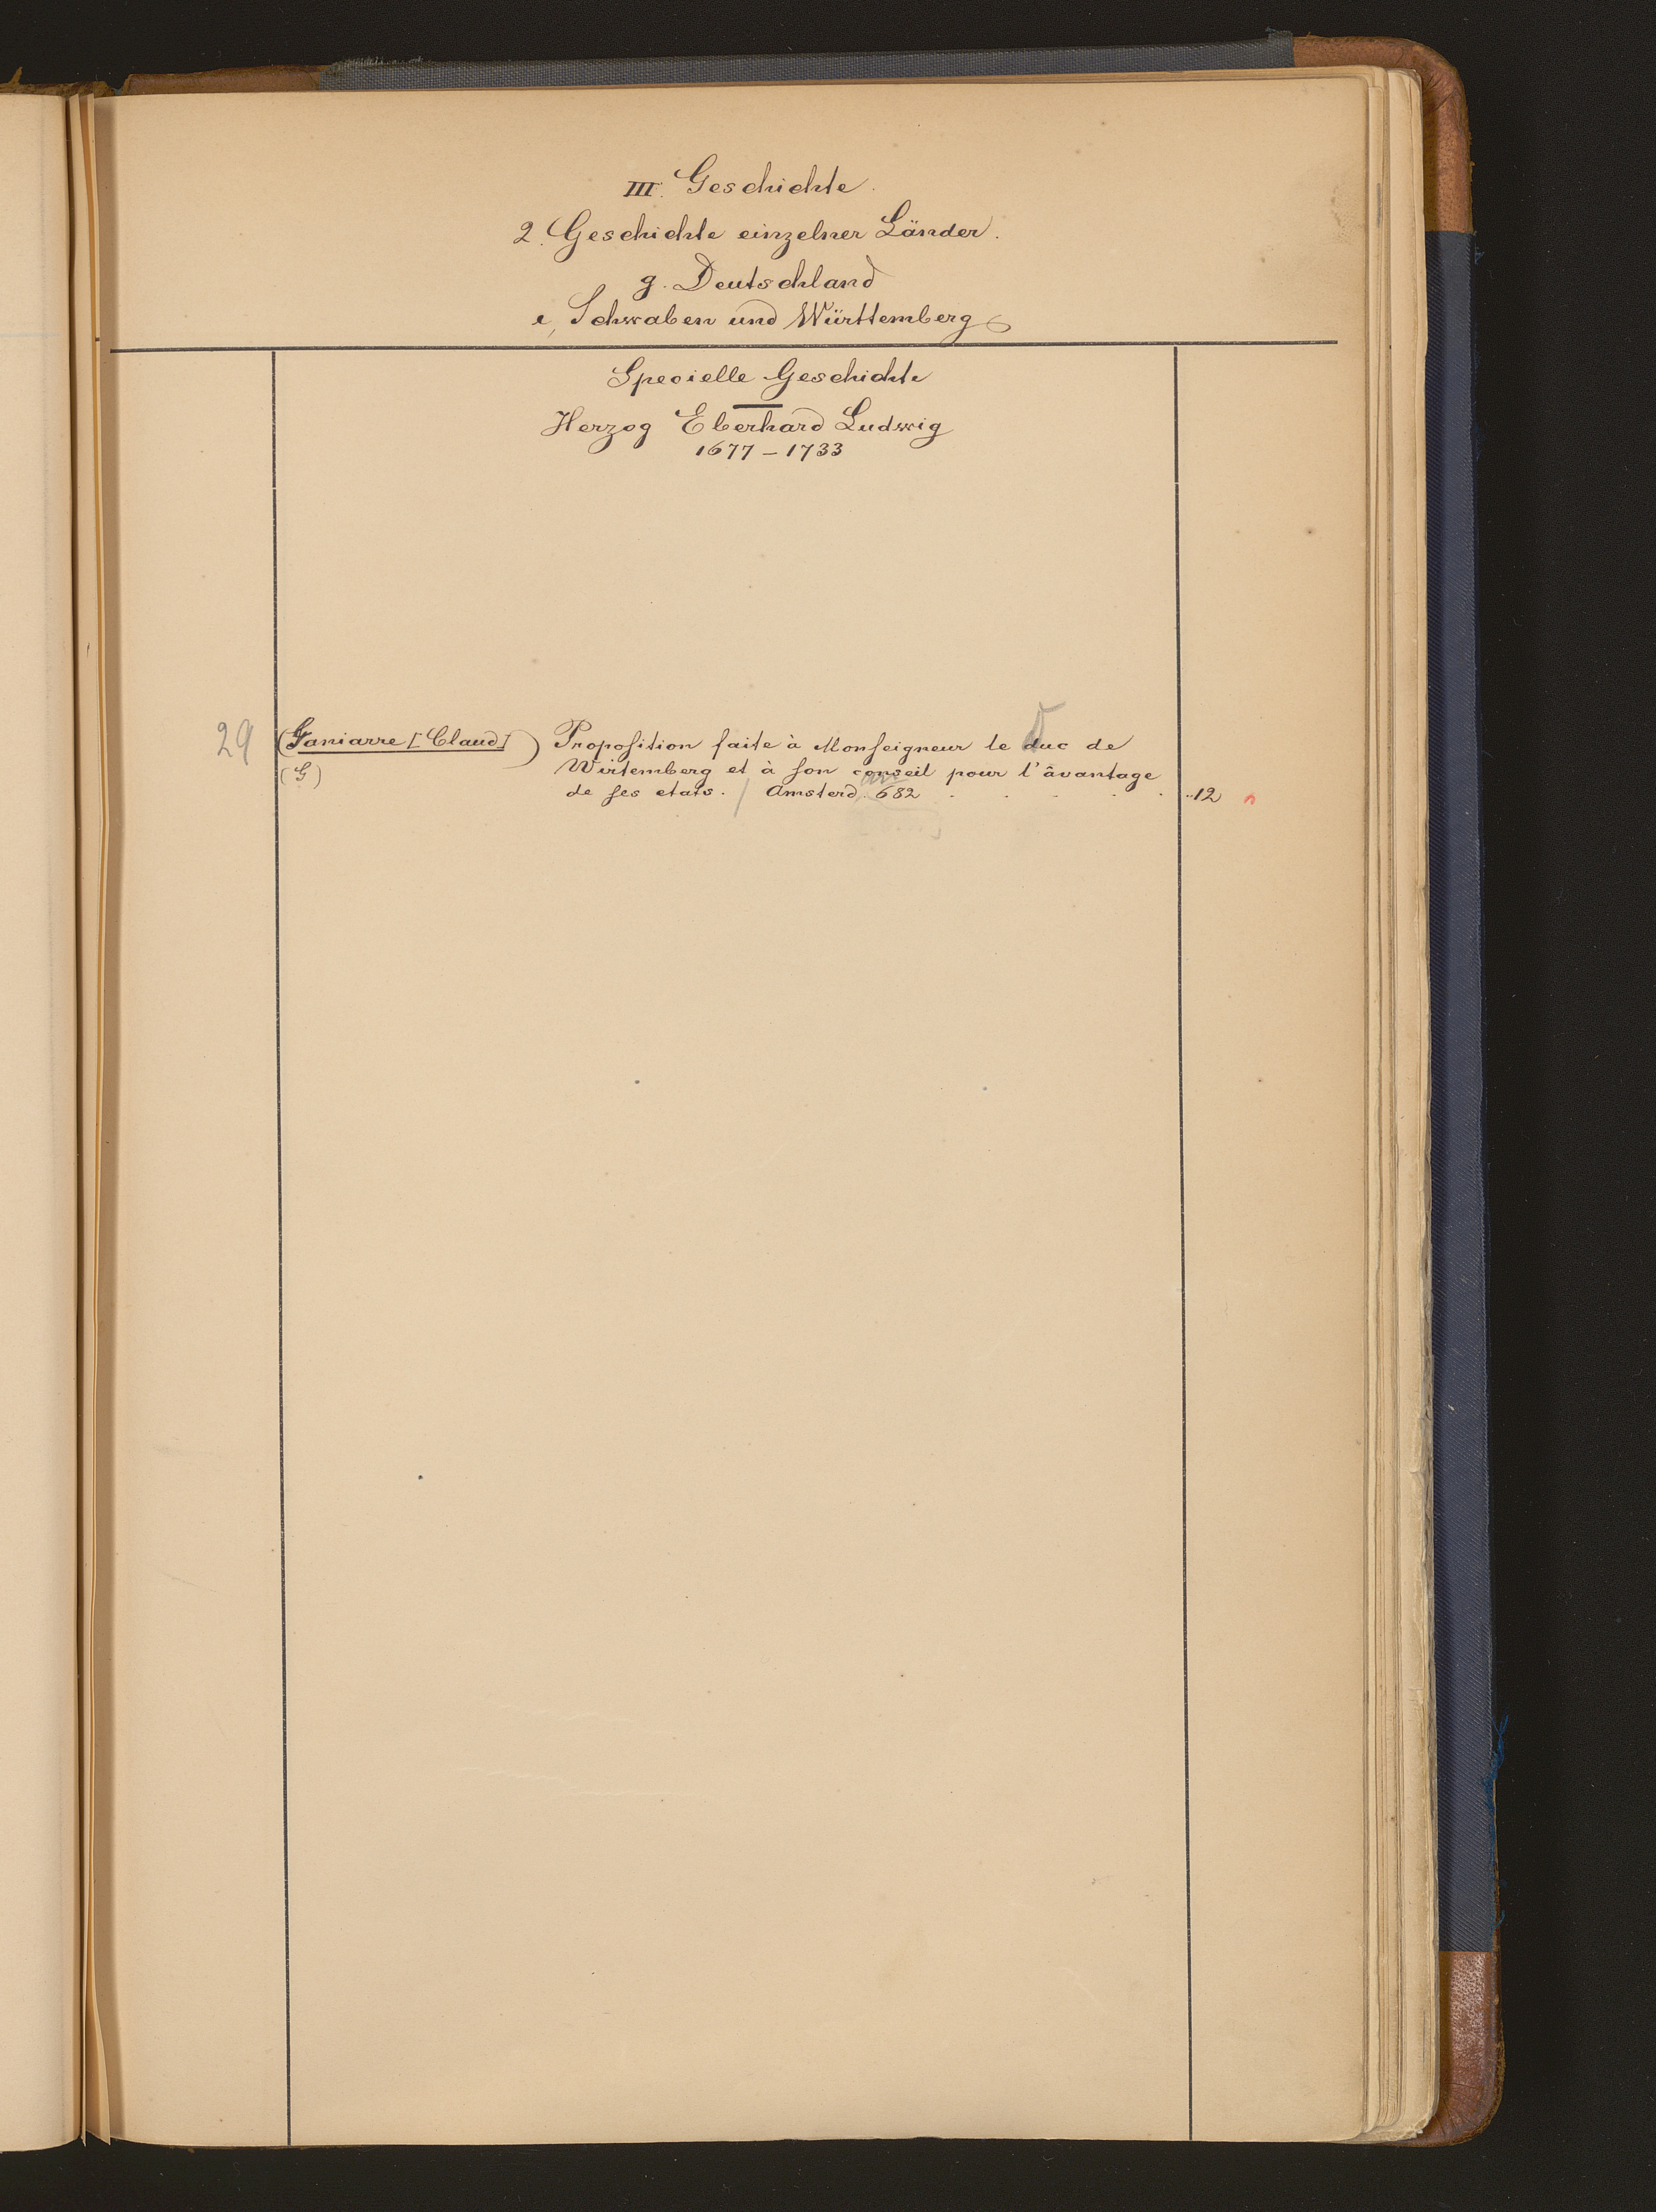 III. Geschichte.
2. Geschichte einzelner Länder.
g. Deutschland
e, Schwaben und Württemberg
Specielle Geschichte
Herzog Eberhard Ludwig
1677-1733
29 (Ganiarre [Claud]) Propoſition faite à Monſeigneur le duc de
(G) Wirtemberg et à ſon conseil pour l'âvantage
de ſes etats. / Amsterd. 682 . . . . . 12